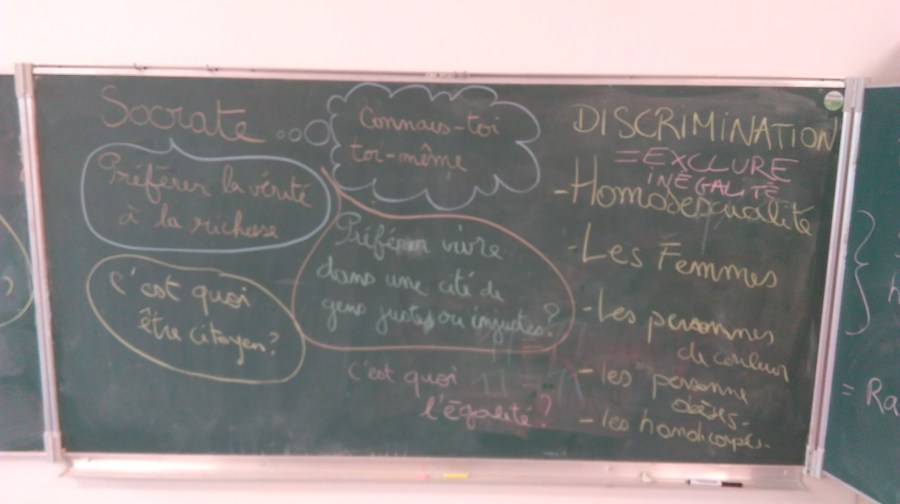 Socrate
Connais-toi
toi-même
Préférer la vérité
à la richesse
Préférer vivre
dans une cité de
gens justes ou injustes?
C'est quoi
être citoyen?
C'est quoi
l'égalité?
DISCRIMINATION
= EXCLURE
INÉGALITÉ
- Homosexualité
- Les Femmes
- Les personnes
de couleur
- les personne
- les handicapés.
= Ra